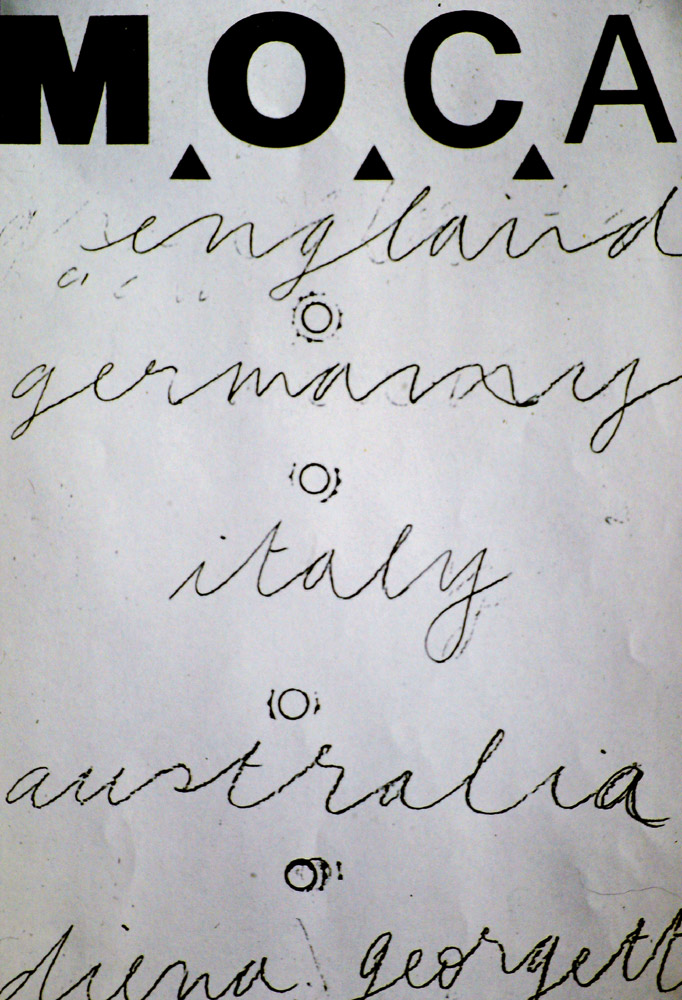 M▲O▲C▲A
england
germany
italy
australia
diena georgett